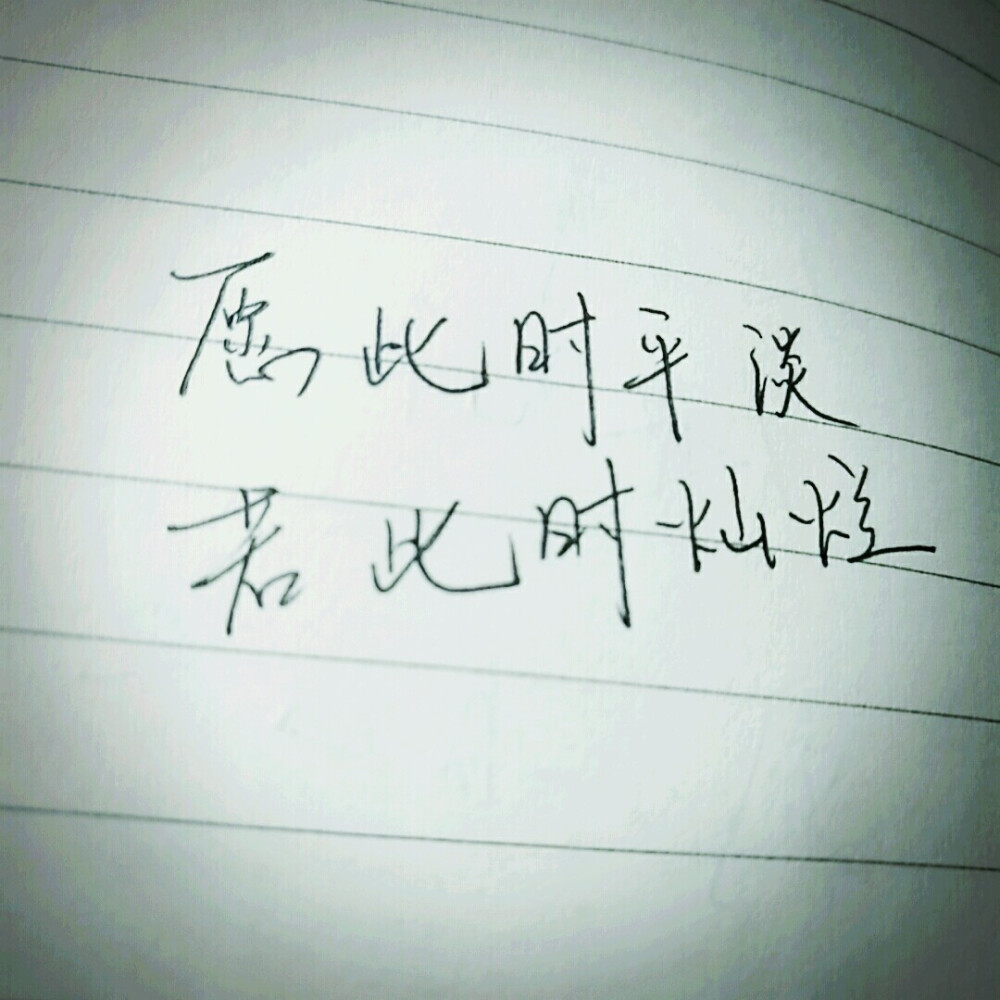 愿此时平淡
若此时灿烂